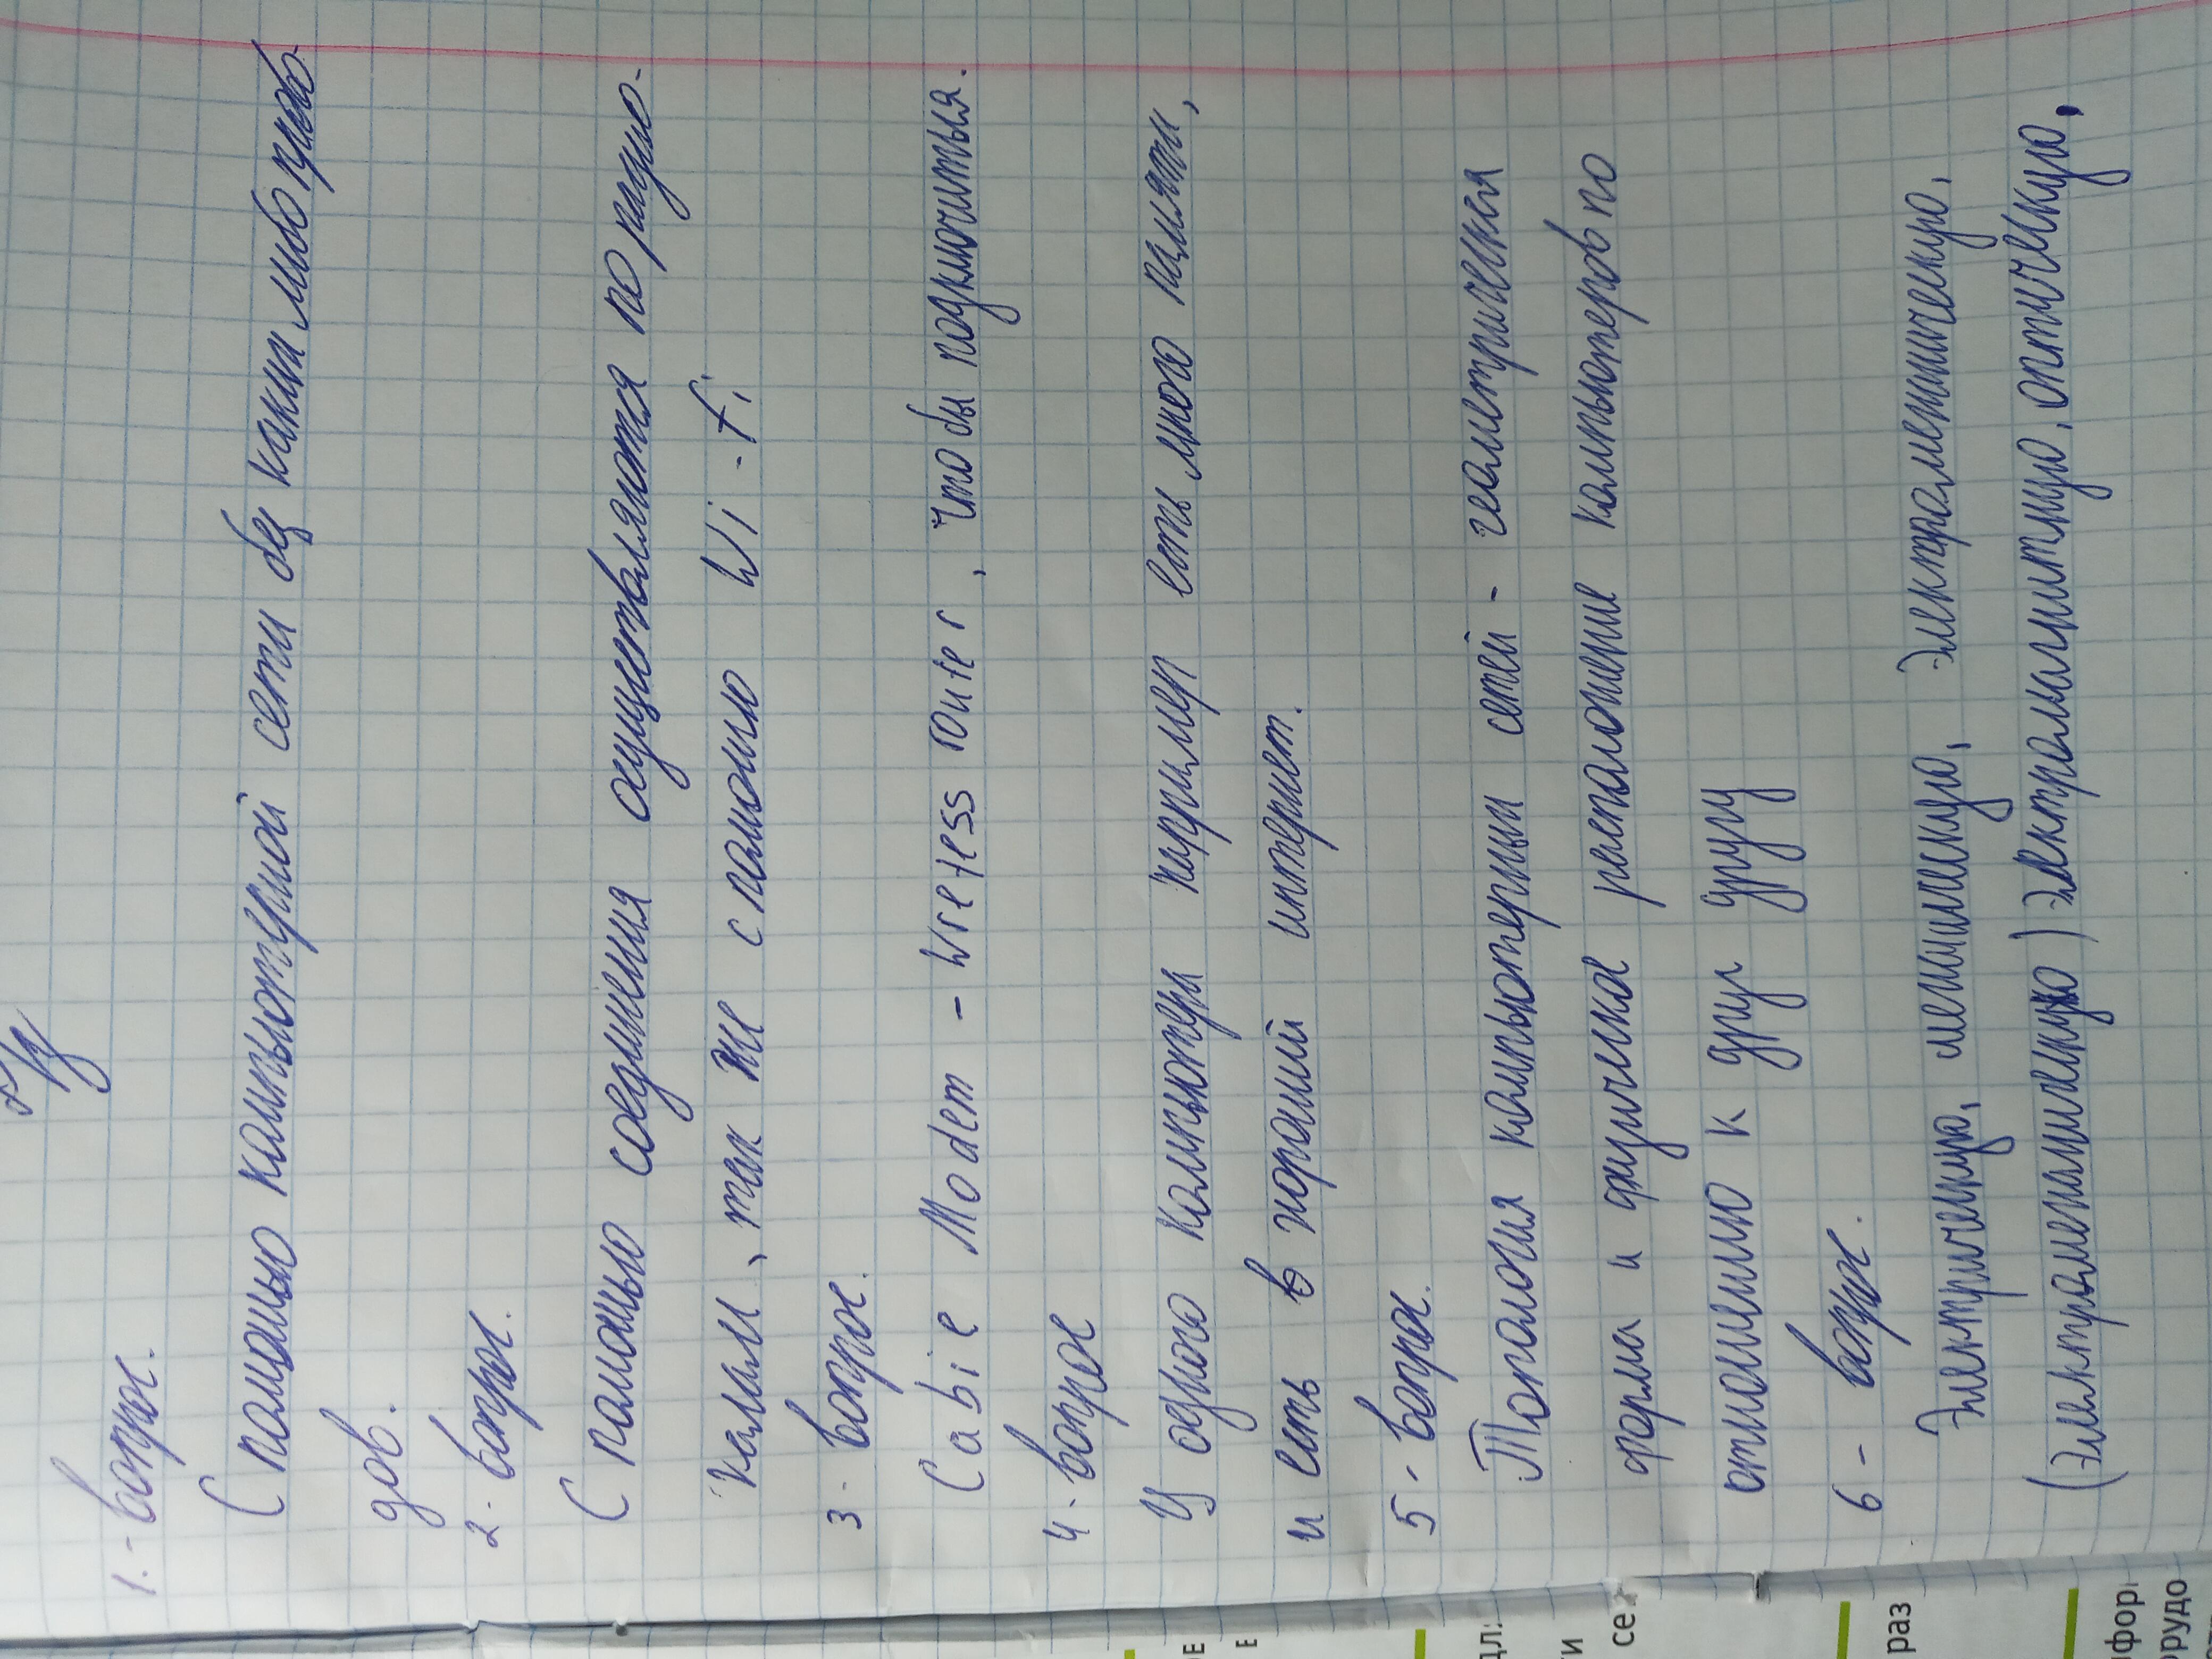 Д/з
1.- вопрос.
С помощью компьютерной сети без каких либо прово-
дов.
2 - вопрос.
С помощью соединения осуществляются по радио-
калам, так же с помощю Wi-fi
3 - вопрос.
Cabie Modem - Wreless router, что бы подключиться.
4 - вопрос
У одного компьютера например есть много памяти,
и есть в хороший интернет.
5 - вопрос.
Топология компьютерных сетей - геометрическая
форма и физическое расположение компьютеров по
отношению к друг другу
6 - вопрос.
Электрическую, механическую,
оптическую,
се
раз